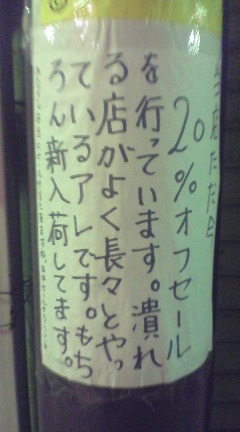 当店ただ今
20%オフセール
を行っています。潰れ
る店がよく長々とやっ
ているアレです。もち
ろん新入荷してます。